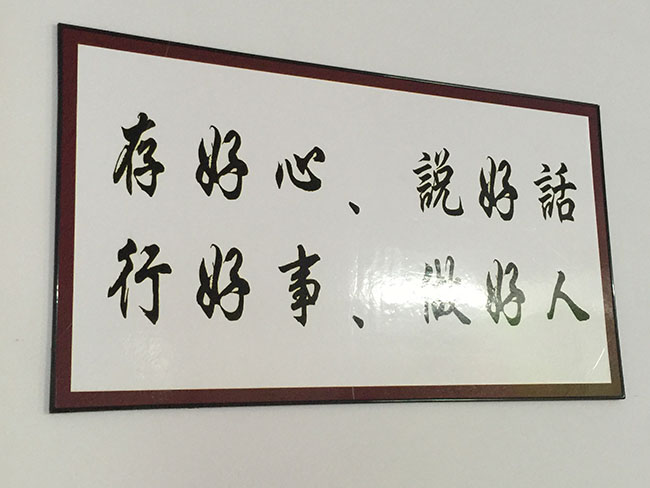 存好心、說好話
行好事、做好人